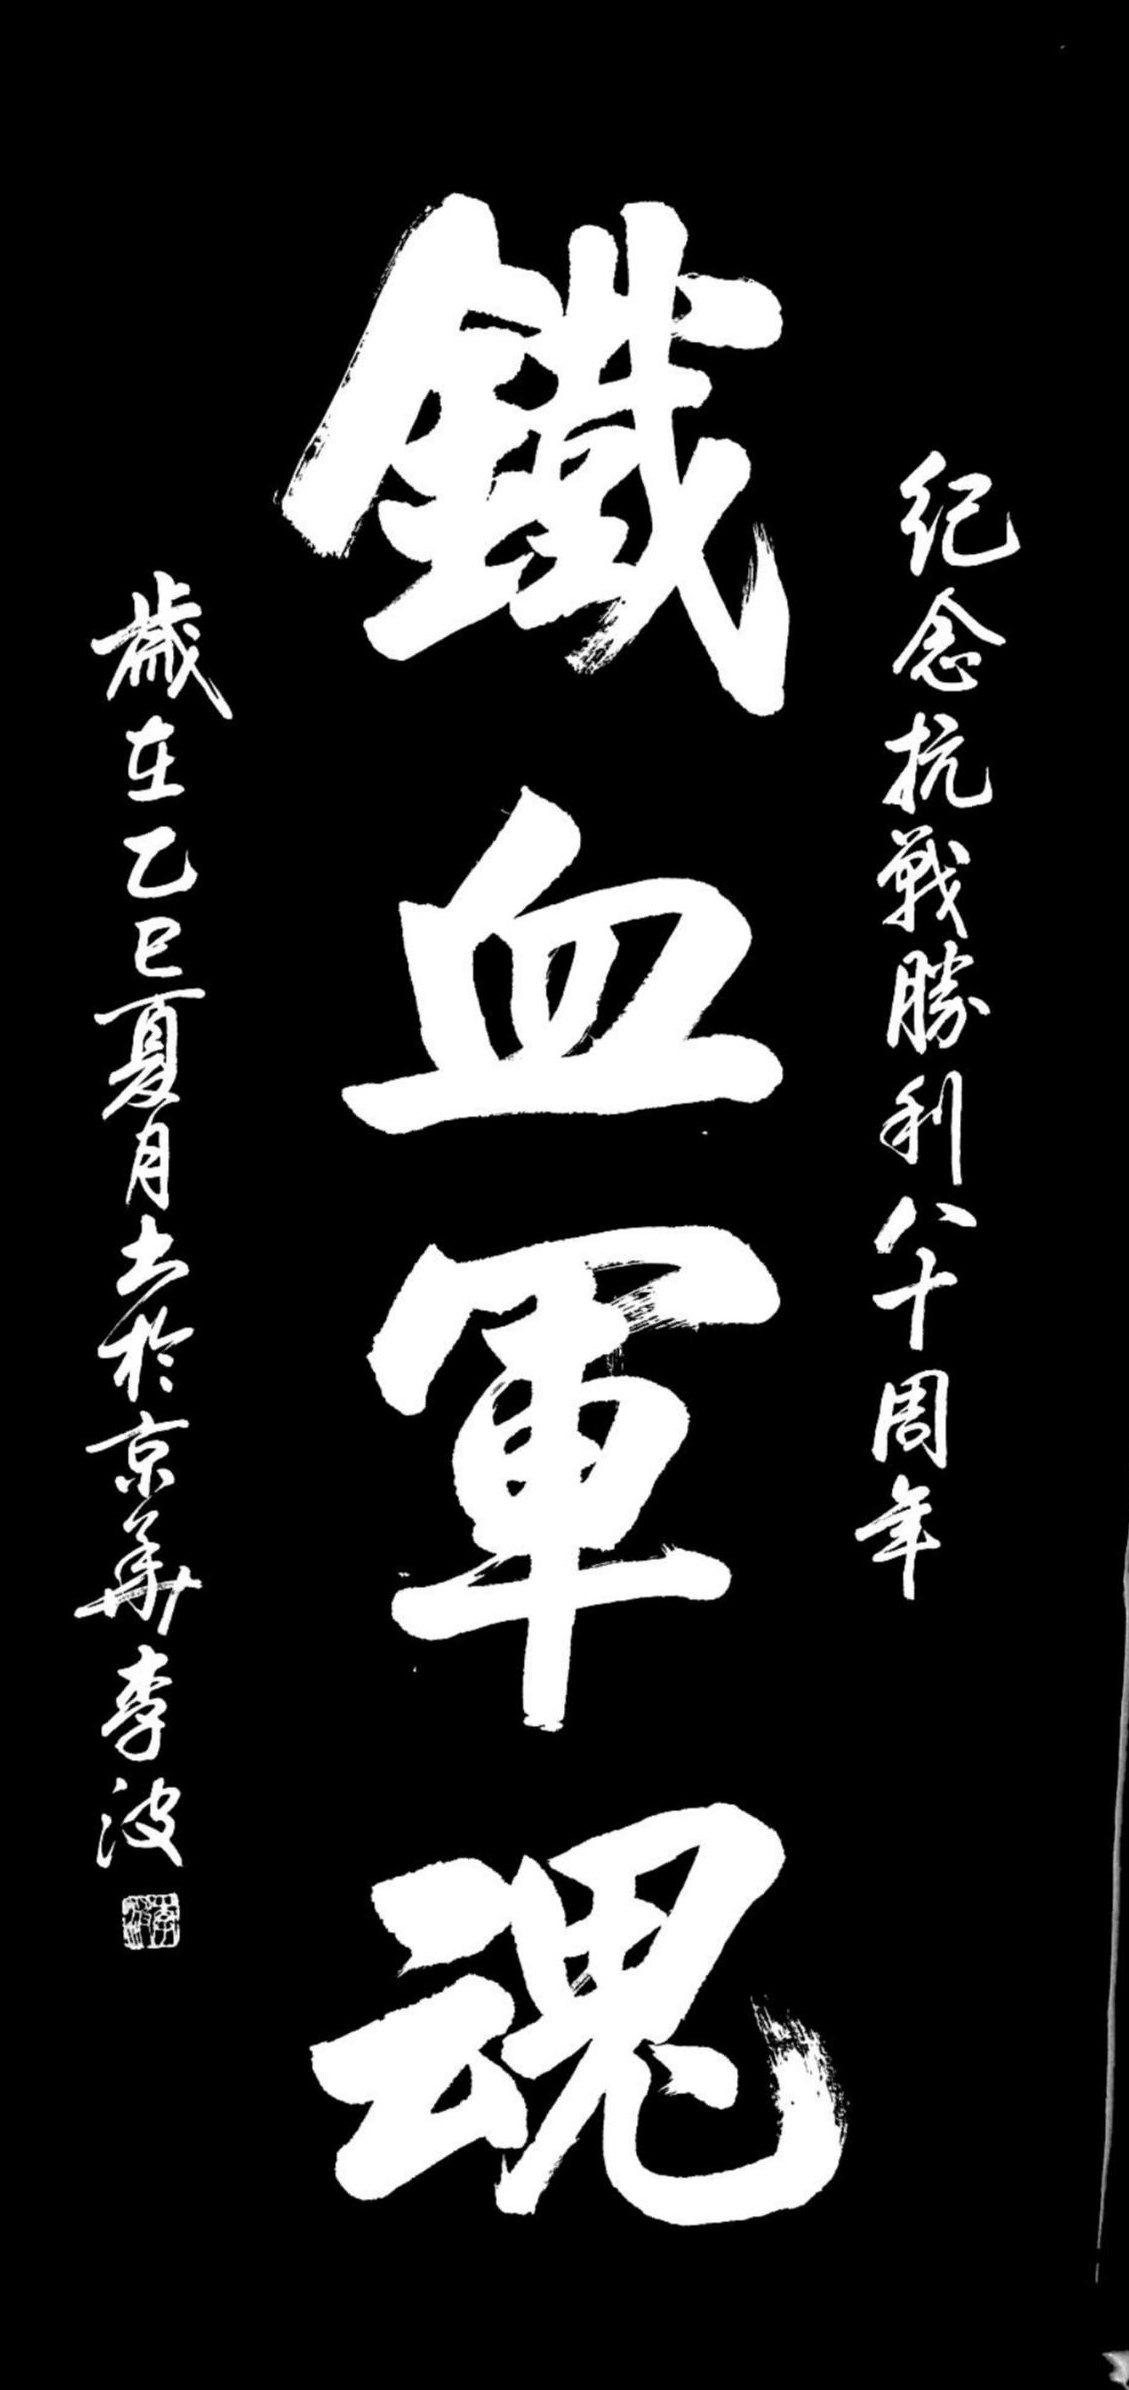 纪念抗戰勝利八十周年
鐵血軍魂
歲在乙巳夏月书於京華李波